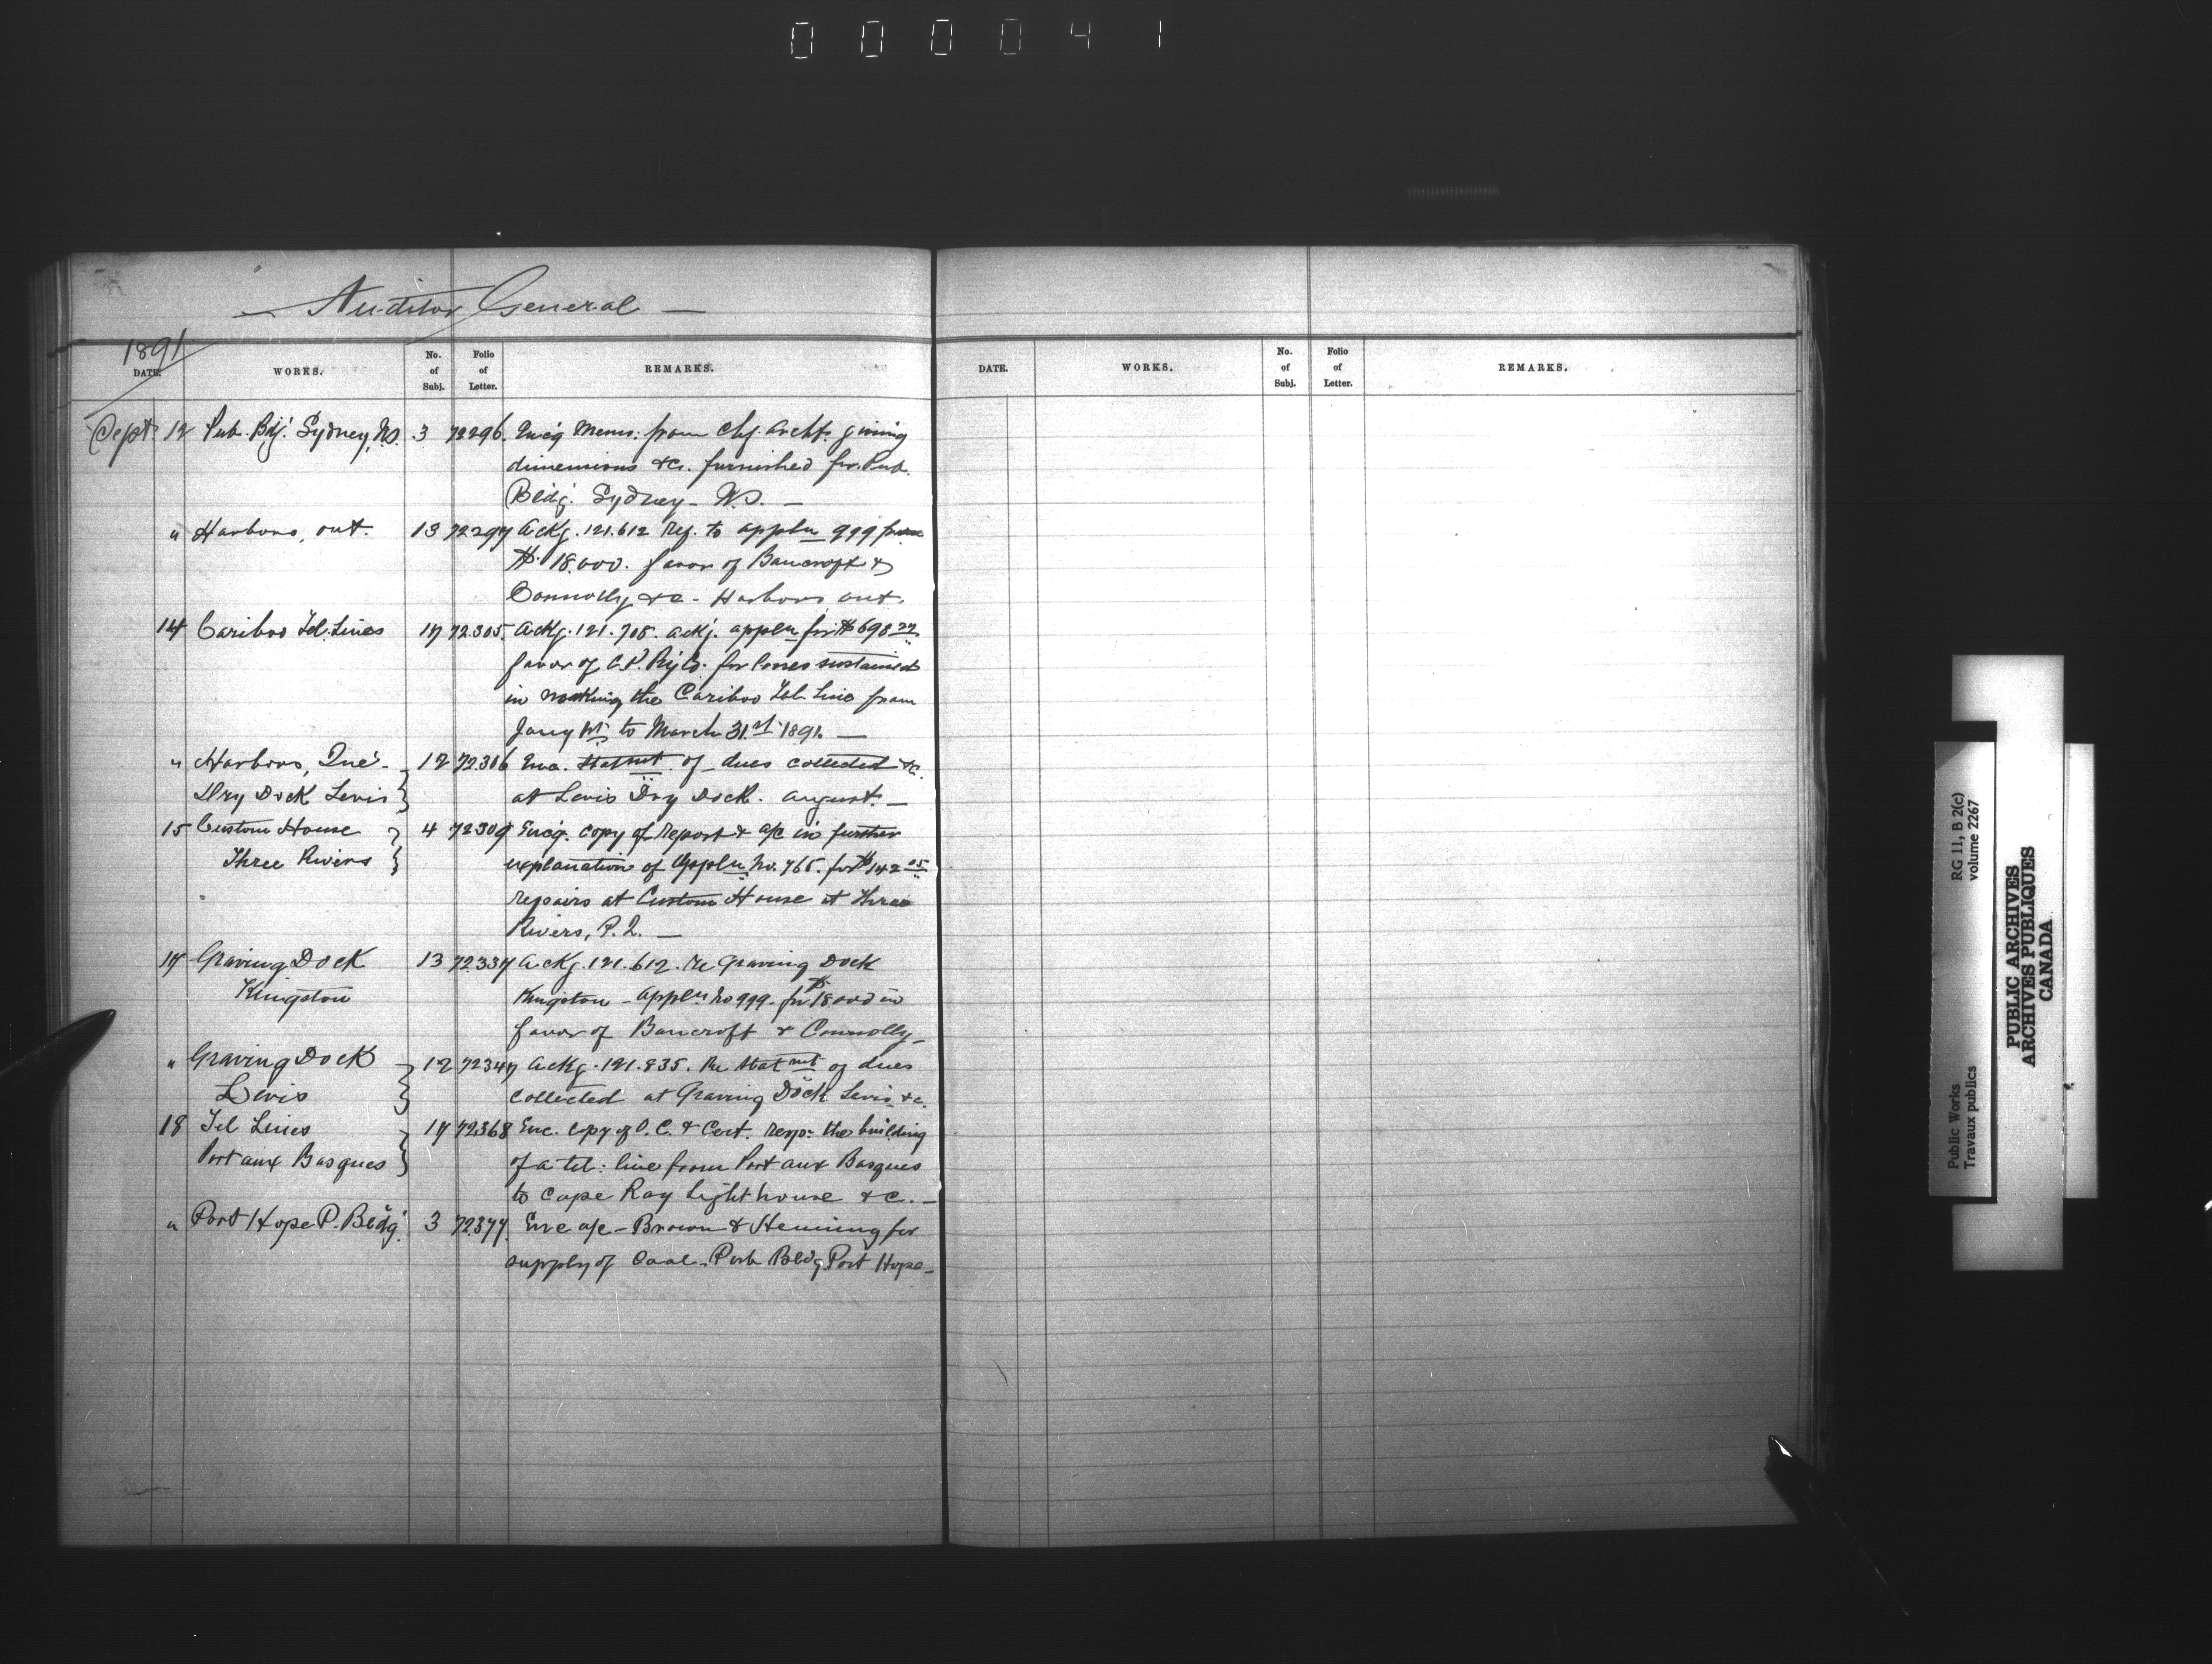 000041
Auditor General
1891
DATE. WORKS. No. of Subj. Folio of Letter. REMARKS.
Sept. 12 Pub. Bdg. Sydney, N.S. 3 72296. Encg Memo: from Chf. Archt. giving
dimensions &c. furnished for Pub.
Bldg. Sydney - N.S. —
" Harbors, Ont. 13 72297 Ackg. 121.612 Ref. to appln 999 from
$18.000. favor of Bancroft &
Connolly &c - Harbors Ont.
14 Cariboo Tel. Lines 17 72.305. Ackg. 121.708. ackg. appln for $698.22
favor of C.P. Ry Co. for losses sustained
in working the Cariboo Tel. Line from
Jany 1st to March 31.st 1891. —
" Harbors, Que. - 12 72306 Enc. Statmt of dues collected &c.
Dry Dock Levis at Levis Dry Dock. August. —
15 Custom House 4 72309 Encg. copy of report & a/c in further
Three Rivers explanation of Appln No. 765. for $142.05
repairs at Custom House at Three
Rivers, P.Q. —
17 Graving Dock 13 72337 Ackg. 121.612. Re Graving Dock
Kingston Kingston - Appln No 999. for $18000 in
favor of Bancroft & Connolly -
" Graving Dock 12 72347 Ackg. 121.835. Re Statmt of dues
Levis collected at Graving Dock Levis &c.
18 Tel Lines 17 72368 Enc. copy of O.C. & Cert. resp: the building
Port aux Basques of a tel: line from Port aux Basques
to Cape Ray Light house &c. -
" Port Hope P. Bldg. 3 72377. Enc a/c - Brown & Henning for
supply of Coal - Pub Bldg Port Hope -
DATE. WORKS. No. of Subj. Folio of Letter. REMARKS.
Public Works
Travaux publics
RG 11, B 2(c)
volume 2267
PUBLIC ARCHIVES
ARCHIVES PUBLIQUES
CANADA